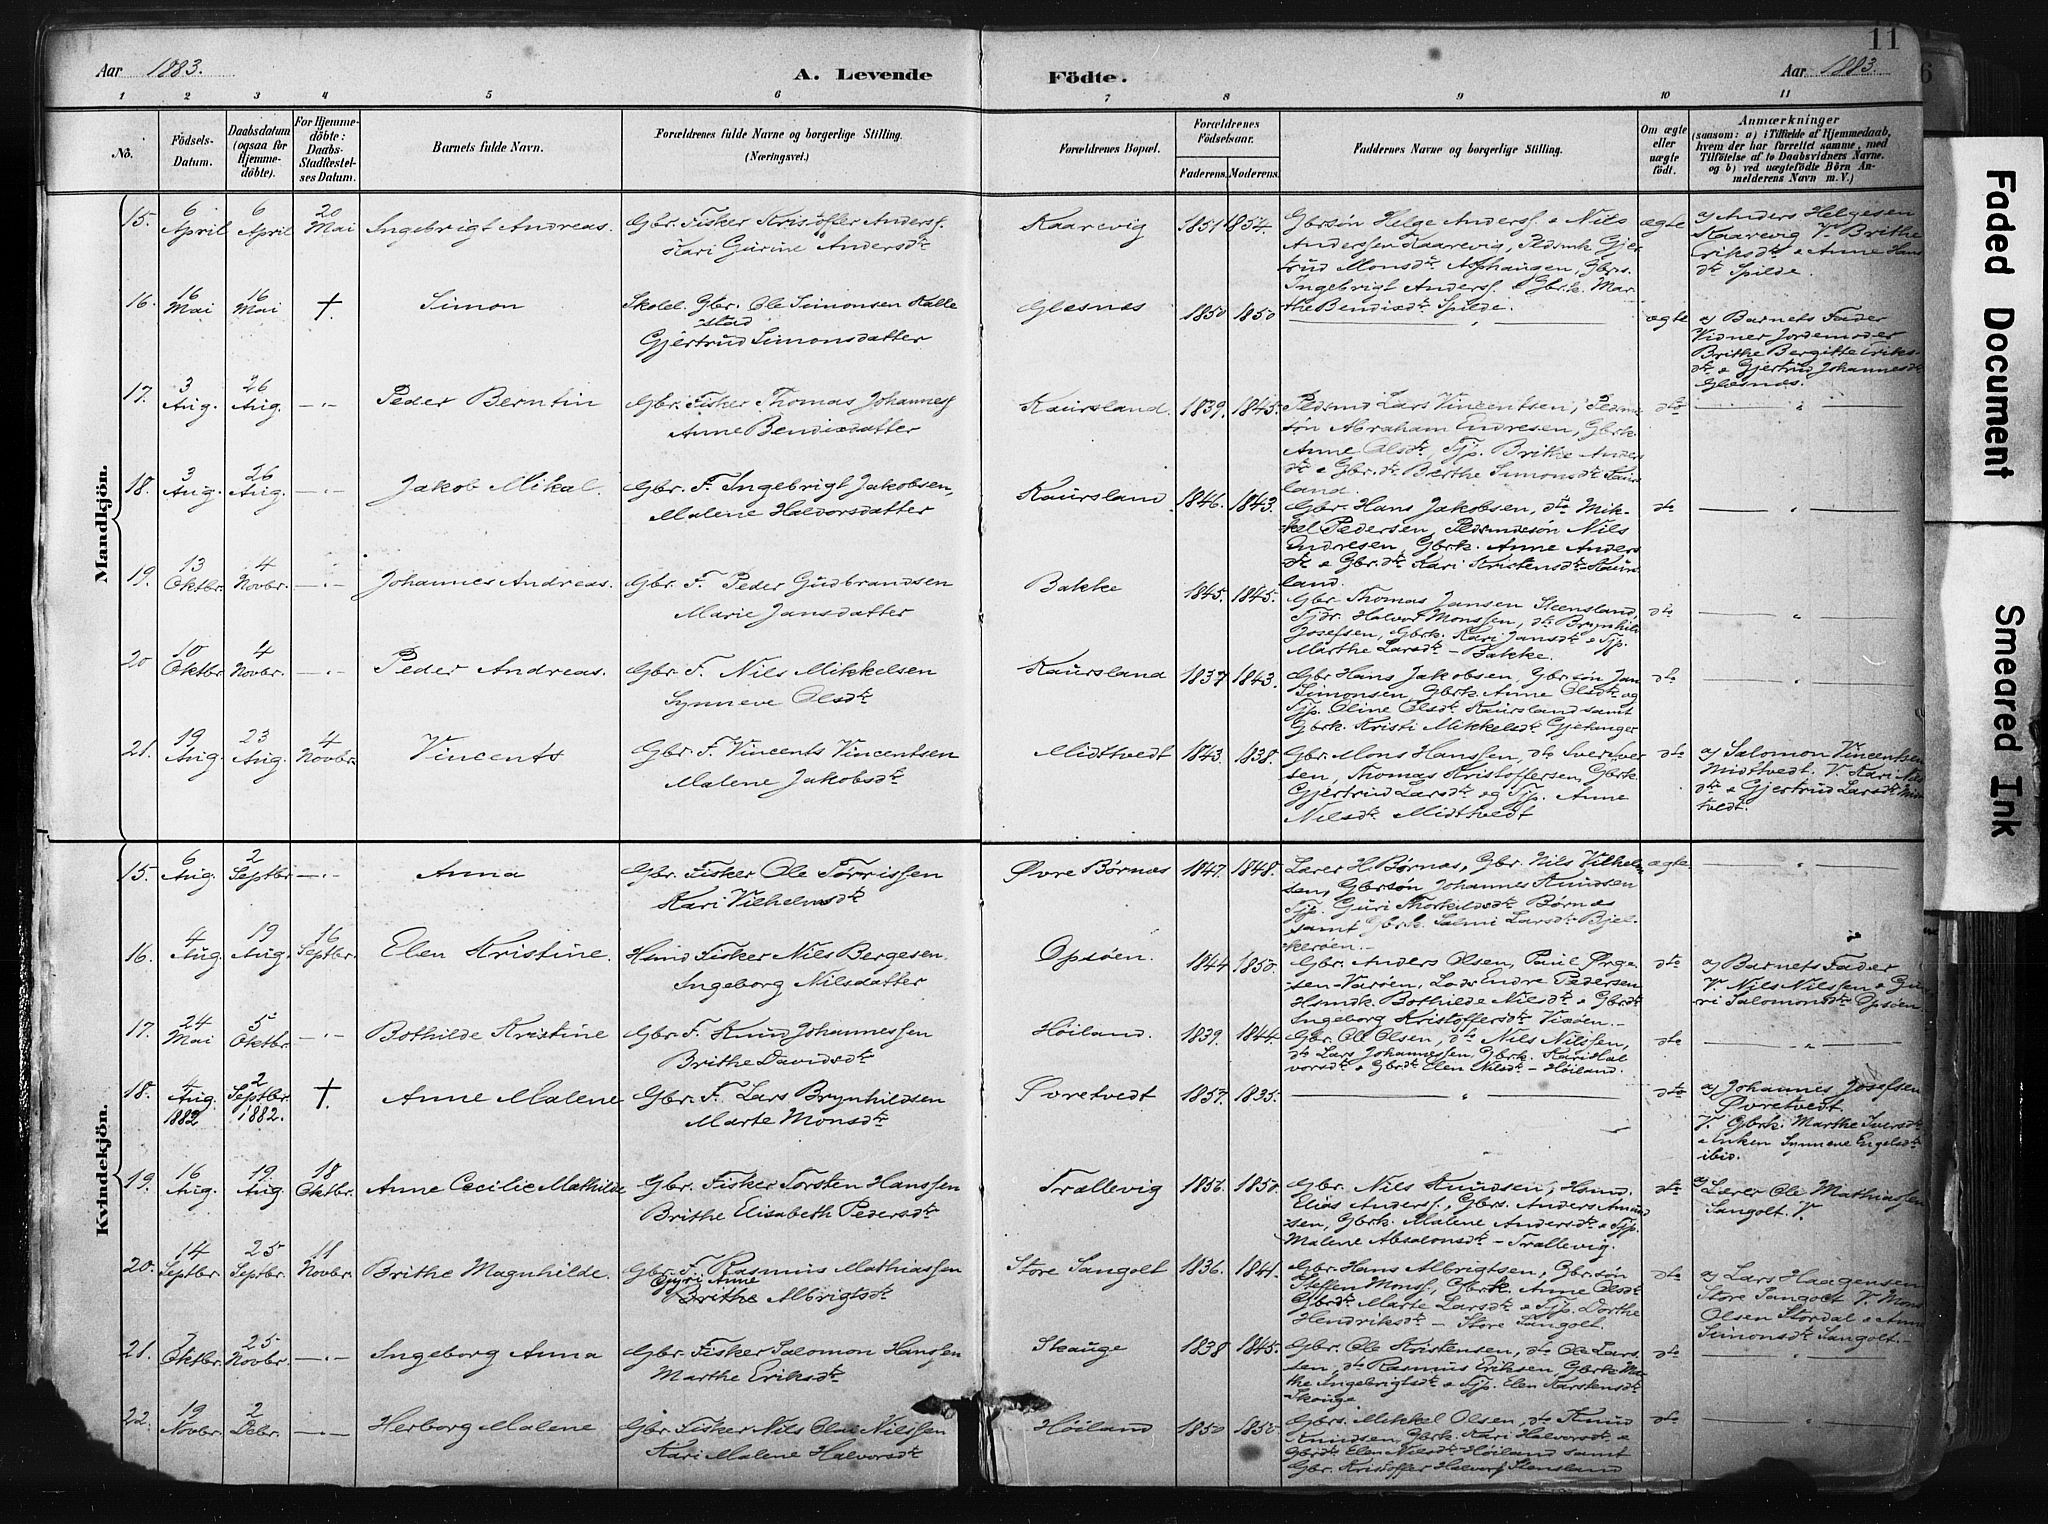 11
Aar 1883.
A. Levende Födte.
Aar 1883.
6
1 2 3 4 5 6 7 8 9 10 11
No.
Födsels-Datum.
Daabsdatum (ogsaa for Hjemmedöbte).
For Hjemmedöbte: Daabs-Stadfæstelses Datum.
Barnets fulde Navn.
Forældrenes fulde Navne og borgerlige Stilling.
(Næringsvei.)
Forældrenes Bopæl.
Forældrenes Födselsaar.
Faderens. Moderens.
Faddernes Navne og borgerlige Stilling.
Om ægte eller uægte født.
Anmærkninger
(saasom: a) i Tilfælde af Hjemmedaab, hvem der har forrettet samme, med Tilföielse af to Daabsvidners Navne, og b) ved uægtefödte Börn Anmelderens Navn m. V.)
Mandkjön.
15. 6 April 6 April 20 Mai Ingebrigt Andreas.
Gbr. Fisker Kristoffer Anders.
Kari Gurine Andersdtr
Kaarevig 1851 1854.
Gbrsøn Helge Anders. & Nils
Anderssen Kaarevig,
Ingebrigt Anders. & Gbrk. Mar-
the Bendixdtr Spilde.
ægte
a) Anders Helgesen
Kaarevig V. Brithe
Eriksdtr & Anne Hans
dtr Spilde.
16. 16 Mai 16 Mai † Simon
Skolel. Gbr. Ole Simonsen Kalle
stad
Gjertrud Simonsdatter
Glesnes 1850 1850
ægte
a) Barnets Fader
Vidner Jordemoder
Brithe Bergitte Eriks-
dtr & Gjertrud Johannesdtr
Glesnes.
17. 3 Aug. 26 Aug. Peder Berntin
Gbr. Fisker Thomas Johannes
Anne Bendixdatter
Kaursland. 1839. 1845.
Pedsmd Lars Vincentsen, Pedsm
søn Abraham Endresen, Gbrk.
Anne Olsdtr, Tjp. Brithe Anders
dtr & Gbr.dtr Berthe Simonsdtr Kaurs
land.
dto
18. 3 Aug. 26 Aug. Jakob Mikal.
Gbr. F. Ingebrigt Jakobsen,
Malene Halvorsdatter
Kaursland 1846. 1843.
Gbr. Hans Jakobsen, dto Mik-
kel Pedersen, Pedsmdsøn Nils
Endresen, Gbrk. Anne Anders
dtr & Gbr.dtr Kari Kristensdtr Kaurs
land.
dto
19. 13 Oktbr. 4 Novbr. Johannes Andreas.
Gbr. F. Peder Gudbrandsen
Marie Jansdatter
Bakke 1845. 1845.
Gbr. Thomas Jansen Steensland,
Tjdr. Halvor Monssen, dto Brynhild
Josefsen, Gbrk. Kari Jansdtr & Tjp.
Marthe Larsdtr - Bakke.
dto
20 10 Oktbr. 4 Novbr. Peder Andreas.
Gbr. F. Nils Mikkelsen
Synneve Olsdtr
Kaursland 1837 1843.
Gbr Hans Jakobsen, Gbrsøn Jan
Simonsen, Gbrk Anne Olsdtr og
Tjp. Oline Olsdtr Kaursland samt
Gbrk. Kristi Mikkelsdtr Gjetanger
dto
21. 19 Aug. 23 Aug. 4 Novbr. Vincents
Gbr. F. Vincents Vincentsen
Malene Jakobsdtr
Midttvedt 1843. 1838.
Gbr. Mons Hanssen, dto Sver Iver
sen, Thomas Kristoffersen, Gbrk.
Gjertrud Larsdtr og Tjp. Anne
Nilsdtr Midttvedt
dto
a) Salomon Vincentsen
Midttvedt. V. Kari Nils
dtr & Gjertrud Larsdtr Mid
tvedt.
Kvindekjön.
15. 6 Aug. 2 Septbr Anna
Gbr. Fisker Ole Torrissen
Kari Vilhelmsdtr
Øvre Børnes 1847. 1848.
Lærer H. Børnes, Gbr. Nils Vilhelm
sen, Gbrsøn Johannes Knudsen
Tjp. Guri Thorkildsdtr Børnes
samt Gbrk. Salmi Larsdtr Bjel-
kerøen.
ægte
16. 4 Aug 19 Aug. 16 Septbr. Elen Kristine.
Hsmd Fisker Nils Bergesen.
Ingeborg Nilsdatter
Opsøen. 1844 1850.
Gbr. Anders Olsen, Paul Ørge-
sen-Varøen, Lods Endre Pedersen
Hsmdk Bothilde Nilsdtr & Gbrdtr
Ingeborg Kristoffersdtr Vixøen.
dto
a) Barnets Fader
V. Nils Nilssen & Gu
ri Salomonsdtr Opsøen
17. 24 Mai 5 Oktbr. Bothilde Kristine
Gbr. F. Knud Johannessen
Brithe Davidsdtr
Høiland. 1839. 1844.
Gbr. Ole Olsen, dto Nils Nilssen,
dto Lars Johannessen, Gbrk. Kari Hal
vorsdtr & Gbrdtr Elen Nilsdtr - Høiland.
dto
18. 4 Aug. 1882 2 Septbr. 1882. † Anne Malene
Gbr. F. Lars Brynhildsen
Marte Monsdtr
Øvretvedt 1857. 1835.
dto
a) Johannes Josefsen
Øvretvedt
V. Gbrk. Marthe Iversdtr
& Enken Synneve Engelsdtr
ibid.
19. 16 Aug. 19 Aug. 18 Oktbr. Anne Cecilie Mathilde
Gbr. Fisker Torsten Hanssen
Brithe Elisabeth Pedersdtr
Trællevig 1856. 1850.
Gbr. Nils Knudsen, Hsmd.
Elias Anders., Gbrs. Anders Amund
sen, Gbrk. Malene Andersdtr & Tjp.
Malene Absalonsdtr - Trællevig.
dto
a) Lærer Ole Mathiassen
Sangolt. V.
20. 14 Septbr. 25 Septbr. 11 Novbr. Brithe Magnhilde.
Gbr. F. Rasmus Mathiassen
Guri Anne
Brithe Albrigtsdtr
Store Sangolt 1836. 1841.
Gbr. Hans Albrigtsen, Gbrsøn
Steffen Monss, Gbrk. Anne Olsdtr
Gbrdtr Marte Larsdtr & Tjp. Dorthe
Hendriksdtr - Store Sangolt.
dto
a) Lars Haagensen
Store Sangolt V. Mons
Olsen Stordal & Anne
Simonsdtr Sangolt.
21. 7 Oktbr. 25 Novbr. Ingeborg Anna
Gbr. Fisker Salomon Hanssen
Marthe Eriksdtr
Skauge 1838 1845.
Gbr. Ole Kristensen, dto Ole Lars-
sen, dto Rasmus Eriksen Gbrk Mar
the Ingebrigtsdtr & Tjp. Elen Karstensdtr
Skouge
dto
22. 19 Novbr. 2 Debr. Herborg Malene
Gbr. Fisker Nils Olai Nilssen
Kari Malene Halvorsdtr
Høiland 1850 1850.
Gbrs. Mikkel Olsen, dto Knud
Knudsen, Gbrk. Kari Halvorsdtr &
Gbrdtr Elen Nilsdtr Høiland samt
Gbr. Kristoffer Halvors Stensland
dto
Faded Document
Smeared Ink